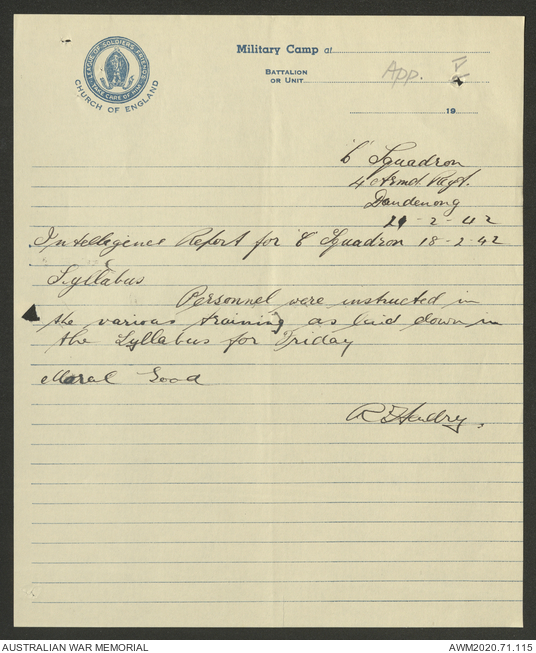 LEAGUE OF SOLDIERS FRIENDS
TAKE CARE OF HIM
CHURCH OF ENGLAND
Military Camp at
BATTALION
OR UNIT
App.
19
'C' Squadron
4 Armd. Regt.
Dandenong
-2-42
Intelligence Report for 'C' Squadron 18-2-42
Syllabus
Personnel were instructed in
the various training as laid down in
the Syllabus for Friday
Moral Good
R Hendry.
AUSTRALIAN WAR MEMORIAL
AWM2020.71.115